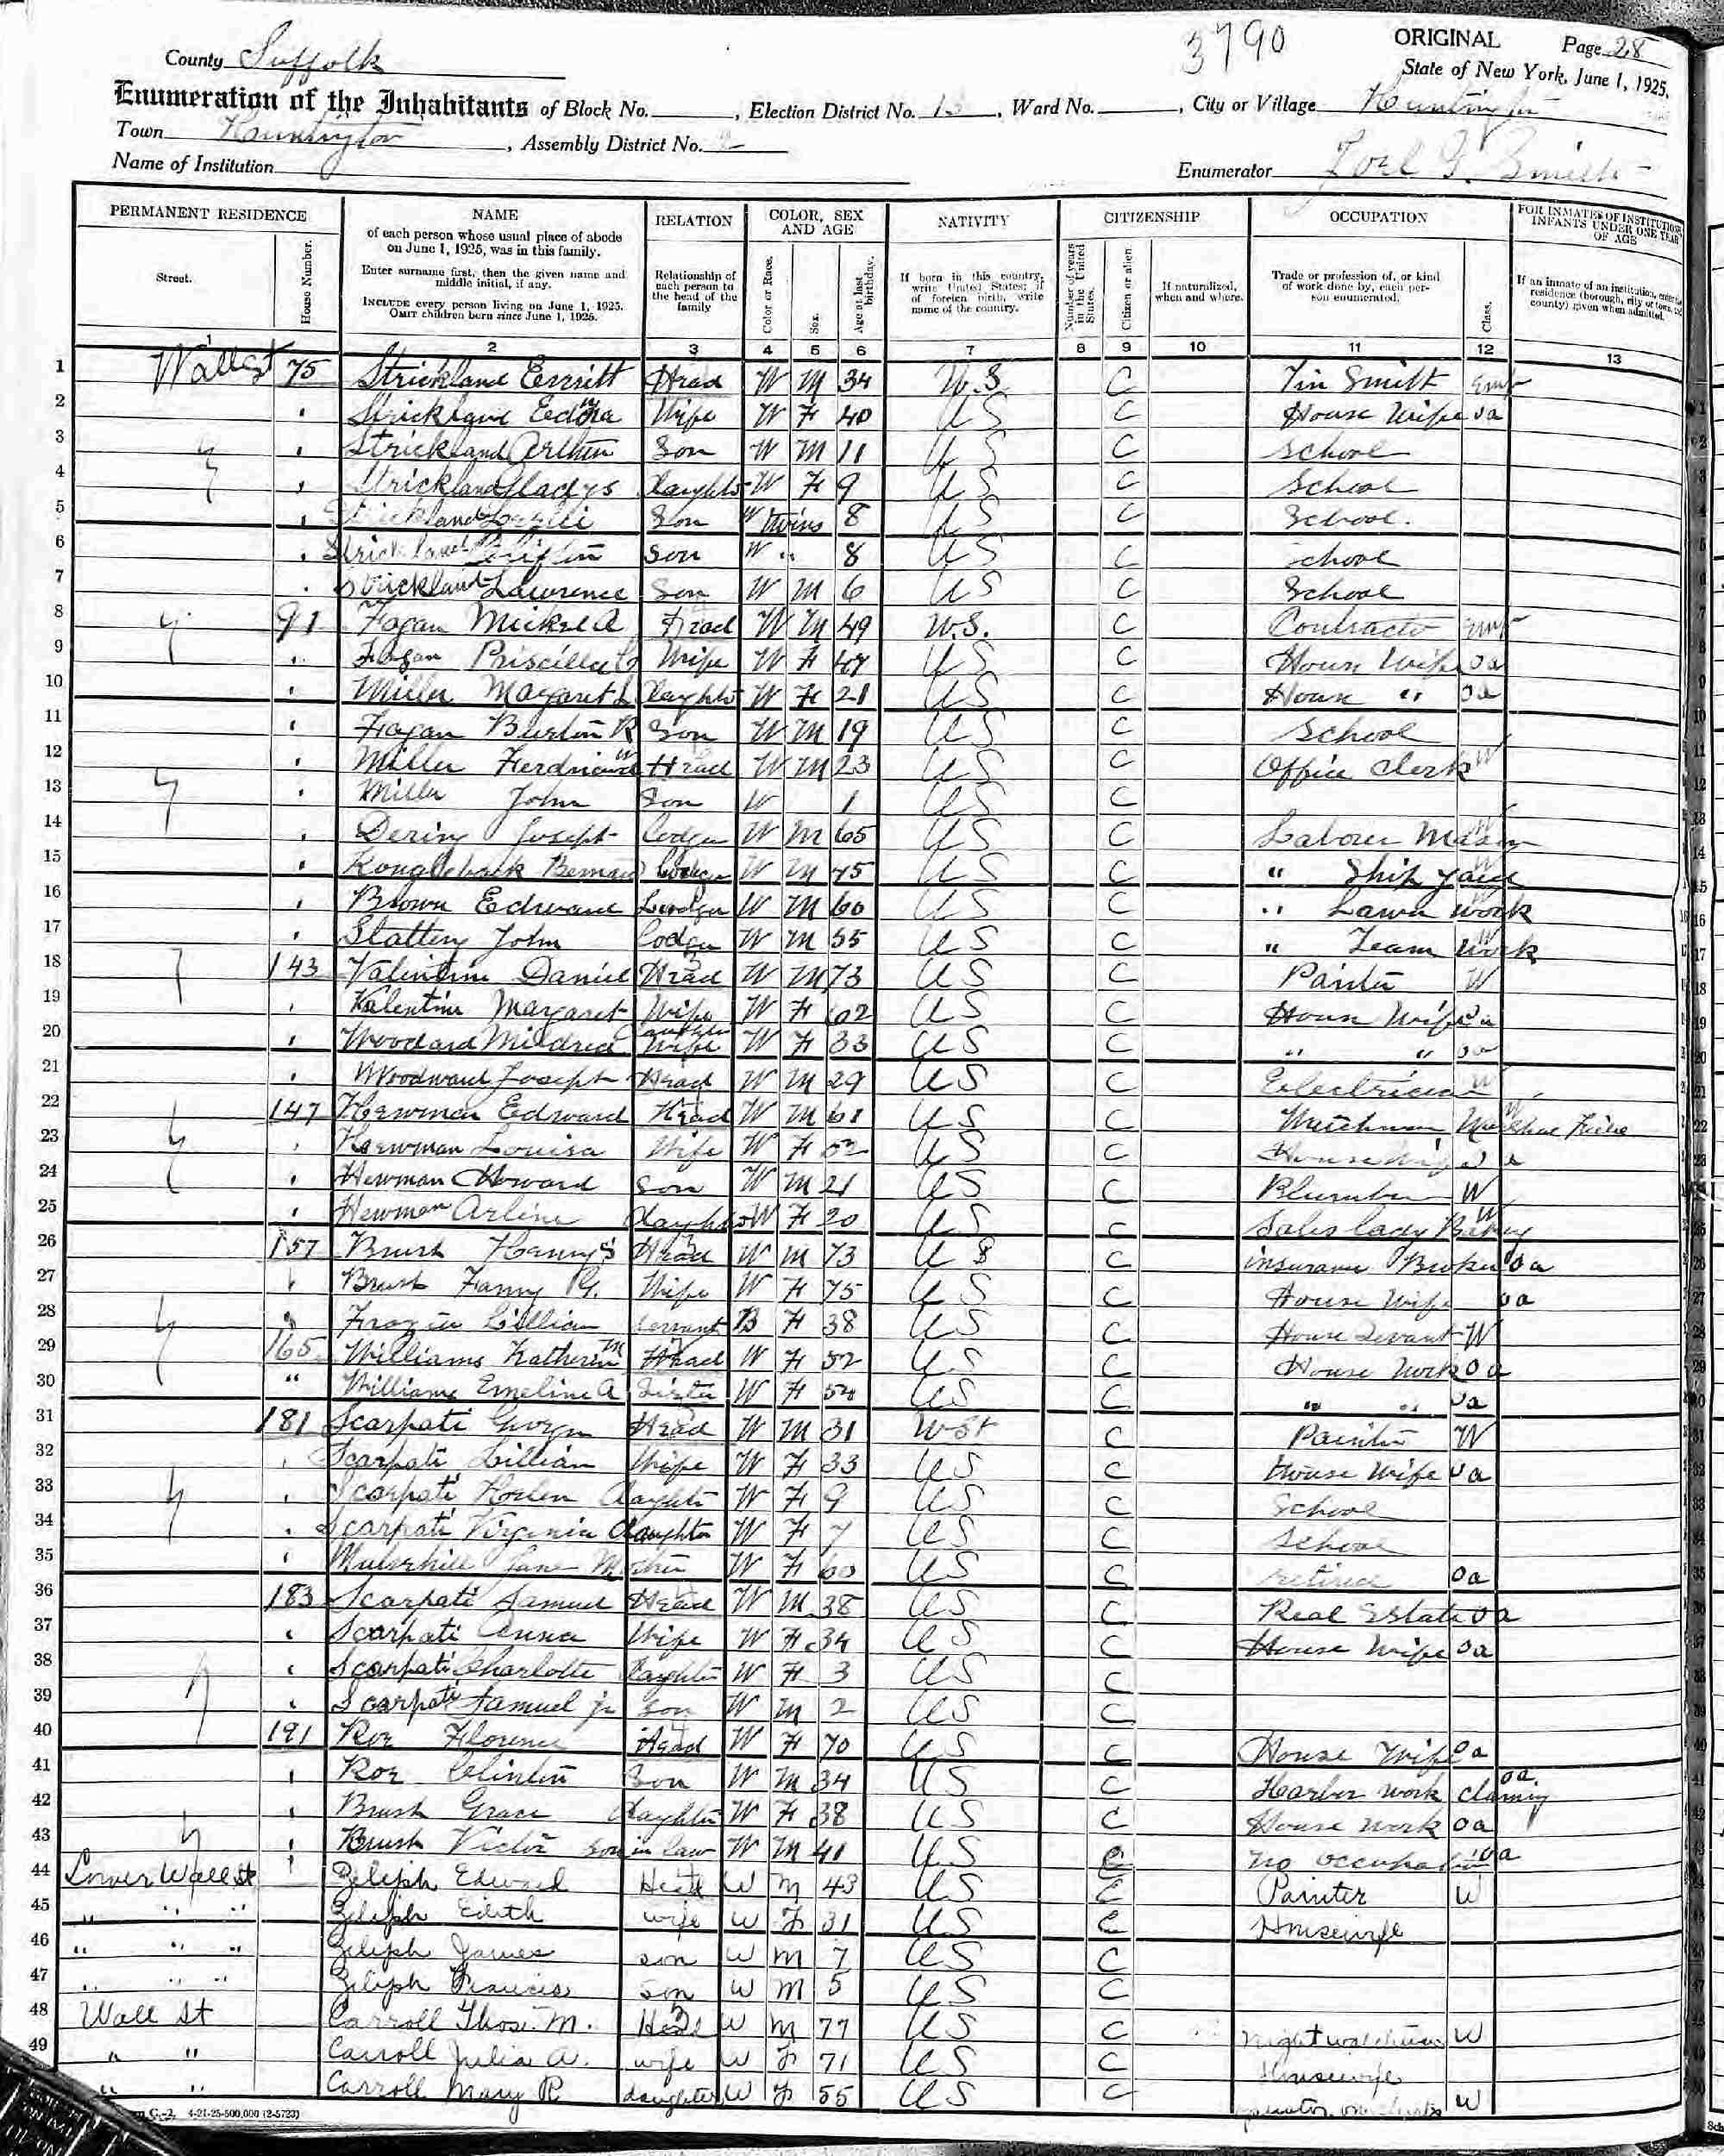 3790
ORIGINAL Page 28
County Suffolk
State of New York, June 1, 1925.
Enumeration of the Inhabitants of Block No. , Election District No. , Ward No. , City or Village Huntington
Town Hunnington , Assembly District No. 2
Name of Institution
Enumerator Smith
PERMANENT RESIDENCE NAME RELATION COLOR, SEX AND AGE NATIVITY CITIZENSHIP OCCUPATION FOR INMATES OF INSTITUTIONS INFANTS UNDER ONE YEAR OF AGE
Street. House Number. of each person whose usual place of abode on June 1, 1925, was in this family. Enter surname first, then the given name and middle initial, if any. INCLUDE every person living on June 1, 1925. OMIT children born since June 1, 1925.
Relationship of each person to the head of the family
Color or Race. Sex. Age at last birthday.
If born in this country, write United States; if of foreign birth, write name of the country.
Number of years in the United States. Citizen or alien. If naturalized, when and where.
Trade or profession of, or kind of work done by, each person enumerated. Class.
If an inmate of an institution, enter residence (borough, city or town, and county) given when admitted.
1 2 3 4 5 6 7 8 9 10 11 12 13
1 Wall st 75 Strickland Head W M 34 U.S C Tin Smith Emp
2 Strickland Wife W F 40 U S C House Wife oa
3 Strickland Arthur Son W M 11 U S C School
4 Strickland Gladys Daughter W F 9 U S C School
5 Strickland Son W twins 8 U S C School.
6 Strickland Clifton Son W " 8 U S C School
7 Strickland Lawrence Son W M 6 U S C School
8 91 Fagan Mickel A Head W M 49 U.S. C Contractor Emp
9 Fagan Priscilla Wife W F 47 U S C House Wife oa
10 Miller Margaret L Daughter W F 21 U S C House " oa
11 Fagan Burton R Son W M 19 U S C School
12 Miller Ferdinand W Head W M 23 U S C Office Clerk W
13 Miller John Son W 1 U S C
14 Dering Joseph Lodger W M 65 U S C Laborer Mason W
15 Lodger W M 45 U S C " Ship yard W
16 Brown Edward Lodger W M 60 U S C " Lawn work
17 Slattery John Lodger W M 55 U S C " Team work W
18 143 Valentine Daniel Head W M 73 U S C Painter W
19 Valentine Margaret Wife W F 62 U S C House Wife oa
20 Woodard Mildred daughter Wife W F 33 U S C " " oa
21 Woodward Joseph Head W M 29 U S C Electrician W
22 147 Hewman Edward Head W M 61 U S C W
23 Hewman Louisa Wife W F 52 U S C House Wife oa
24 Hewman Howard Son W M 21 U S C Plumber W
25 Hewman Arline Daughter W F 20 U S C Sales lady Bakery W
26 157 Brush Henry S Head W M 73 U S C insurance Broker oa
27 Brush Fanny G. Wife W F 75 U S C House Wife oa
28 Frazier Lillian Servant B F 38 U S C House Servant W
29 165 Williams Katherin M Head W F 52 U S C House Work oa
30 " Williams Emeline A Sister W F 54 U S C " " oa
31 181 Scarpati George Head W M 31 U St C Painter W
32 Scarpati Lillian Wife W F 33 U S C House Wife oa
33 Scarpati Helen Daughter W F 9 U S C School
34 Scarpati Virginia Daughter W F 7 U S C School
35 Mulerhill Jane Mother W F 60 U S C retired oa
36 183 Scarpati Samuel Head W M 38 U S C Real Estate oa
37 Scarpati Anna Wife W F 34 U S C House Wife oa
38 Scarpati Charlotte Daughter W F 3 U S C
39 Scarpati Samuel jr Son W M 2 U S C
40 191 Roe Florence Head W F 70 U S C House Wife oa
41 Roe Clinton Son W M 34 U S C Harbor work claming oa.
42 Brush Grace Daughter W F 38 U S C House Work oa
43 Brush Victor Son in law W M 41 U S C no occupation oa
44 Lower Wall St Zeliph Edward Head W M 43 U S C Painter W
45 " " " Zeliph Edith wife W F 31 U S C Housewife
46 " " " Zeliph James son W M 7 U S C
47 " " " Zeliph Francis son W M 5 U S C
48 Wall St Carroll Thos. M. Head W M 77 U S C night watchman W
49 " " Carroll Julia A. wife W F 71 U S C Housewife
" " Carroll Mary R daughter W F 55 U S C W
C.-2, 4-21-25-500,000 (2-5723)